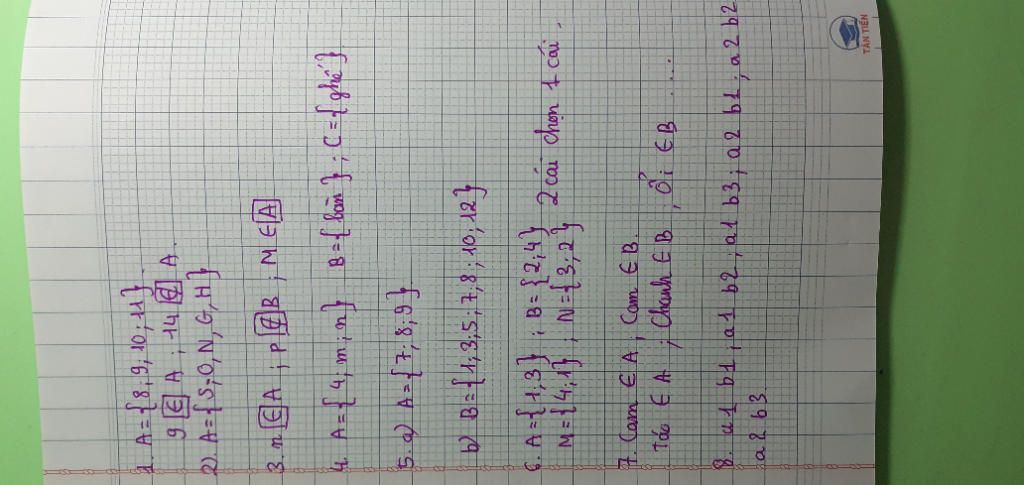 1. A = { 8 ; 9 ; 10 ; 11 }
9 ∈ A ; 14 ∉ A.
2) A = { S ; O, N, G, H }
3. n ∈ A ; P ∉ B ; M ∈ A
4. A = { 4 ; m ; n } B = { bàn } ; C = { ghế }
5. a) A = { 7 ; 8 ; 9 }
b) B = { 1 ; 3 ; 5 ; 7 ; 8 ; 10 ; 12 }
6. A = { 1 ; 3 } ; B = { 2 ; 4 } 2 cái chọn 1 cái.
M = { 4 ; 1 } ; N = { 3 ; 2 }
7. Cam ∈ A ; Cam ∈ B.
Táo ∈ A ; Chanh ∈ B ; Ổi ∈ B ....
8. a1 b1 ; a1 b2 ; a1 b3 ; a2 b1 ; a2 b2
a2 b3.
TÂN TIẾN